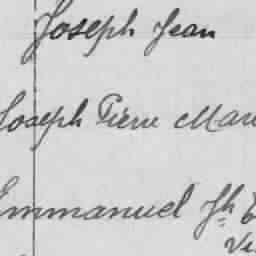 Joseph Jean
Joseph Pierre Mar
Emmanuel Jh